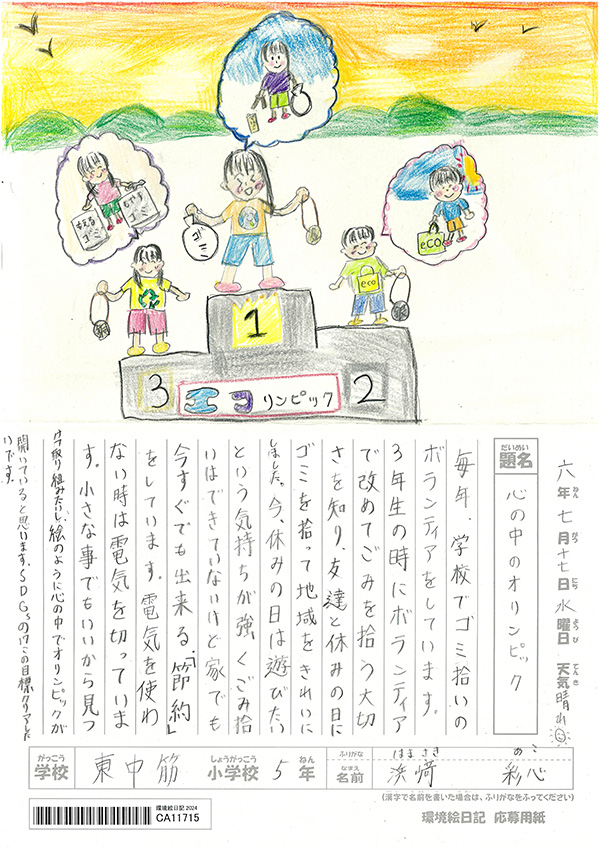 もえる
ゴミ
もやす
ゴミ
ゴミ
eco
eco
銅
銀
1
3
2
エコリンピック
六年七月十七日水曜日 天気晴れ
ねん
がつ
にち
ようび
てんき
だいめい
題名
心の中のオリンピック
毎年、学校でゴミ拾いの
ボランティアをしています。
3年生の時にボランティア
で改めてごみを拾う大切
さを知り、友達と休みの日に
ゴミを拾って地域をきれいに
しました。今、休みの日は遊びたい
という気持ちが強くごみ拾
いはできていないけど家でも
今すぐでも出来る、「節約」
をしています。電気を使わ
ない時は電気を切っていま
す。小さな事でもいいから見つ
けて取り組みたいし、絵のように心の中でオリンピックが
開いていると思います。SDGsの17この目標クリアした
いです。
がっこう
学校
東中筋
しょうがっこう
小学校
5
ねん
年
ふりがな
はまさき
のこ
なまえ
名前
浜﨑
彩心
(漢字で名前を書いた場合は、ふりがなをふってください)
環境絵日記 2024
CA11715
環境絵日記 応募用紙